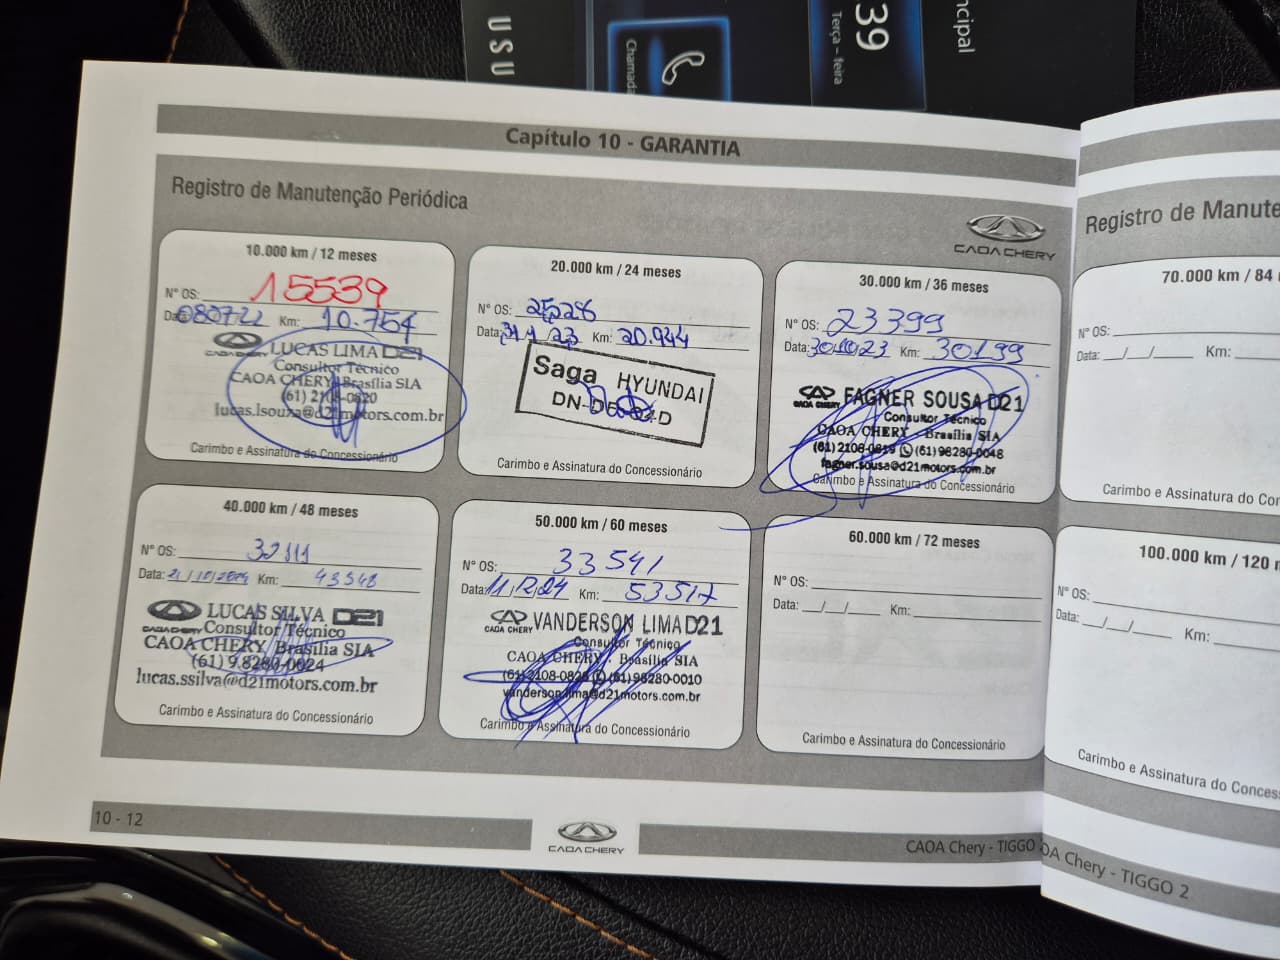 USU
Chamada
39
Terça - feira
ncipal
Capítulo 10 - GARANTIA
Registro de Manutenção Periódica
CAOA CHERY
10.000 km / 12 meses
N° OS: 15539
Data: 080722 Km: 10.754
CAOA CHERY LUCAS LIMA D21
Consultor Técnico
CAOA CHERY Brasília SIA
(61) 2108-0820
lucas.lsouza@d21motors.com.br
Carimbo e Assinatura do Concessionário
20.000 km / 24 meses
N° OS:
Data: Km: 20.944
Saga HYUNDAI
Carimbo e Assinatura do Concessionário
30.000 km / 36 meses
N° OS: 23399
Data: 30/10/23 Km: 30199
CAOA CHERY FAGNER SOUSA D21
Consultor Técnico
CAOA CHERY - Brasília SIA
(61) 2108-0819 (61) 98280-0048
fagner.sousa@d21motors.com.br
Carimbo e Assinatura do Concessionário
40.000 km / 48 meses
N° OS: 32111
Data: Km: 43548
CAOA CHERY LUCAS SILVA D21
Consultor Técnico
CAOA CHERY Brasília SIA
(61) 9.8280-0024
lucas.ssilva@d21motors.com.br
Carimbo e Assinatura do Concessionário
50.000 km / 60 meses
N° OS: 33541
Data: 11/12/24 Km: 53517
CAOA CHERY VANDERSON LIMA D21
Consultor Técnico
CAOA CHERY - Brasília SIA
(61) 98280-0010
vanderson.lima@d21motors.com.br
Carimbo e Assinatura do Concessionário
60.000 km / 72 meses
N° OS:
Data: __/__/__ Km:
Carimbo e Assinatura do Concessionário
10 - 12
CAOA CHERY
CAOA Chery - TIGGO
Registro de Manute
70.000 km / 84
N° OS:
Data: __/__/__ Km:
Carimbo e Assinatura do Con
100.000 km / 120 m
N° OS:
Data: __/__/__ Km:
Carimbo e Assinatura do Conces
OA Chery - TIGGO 2